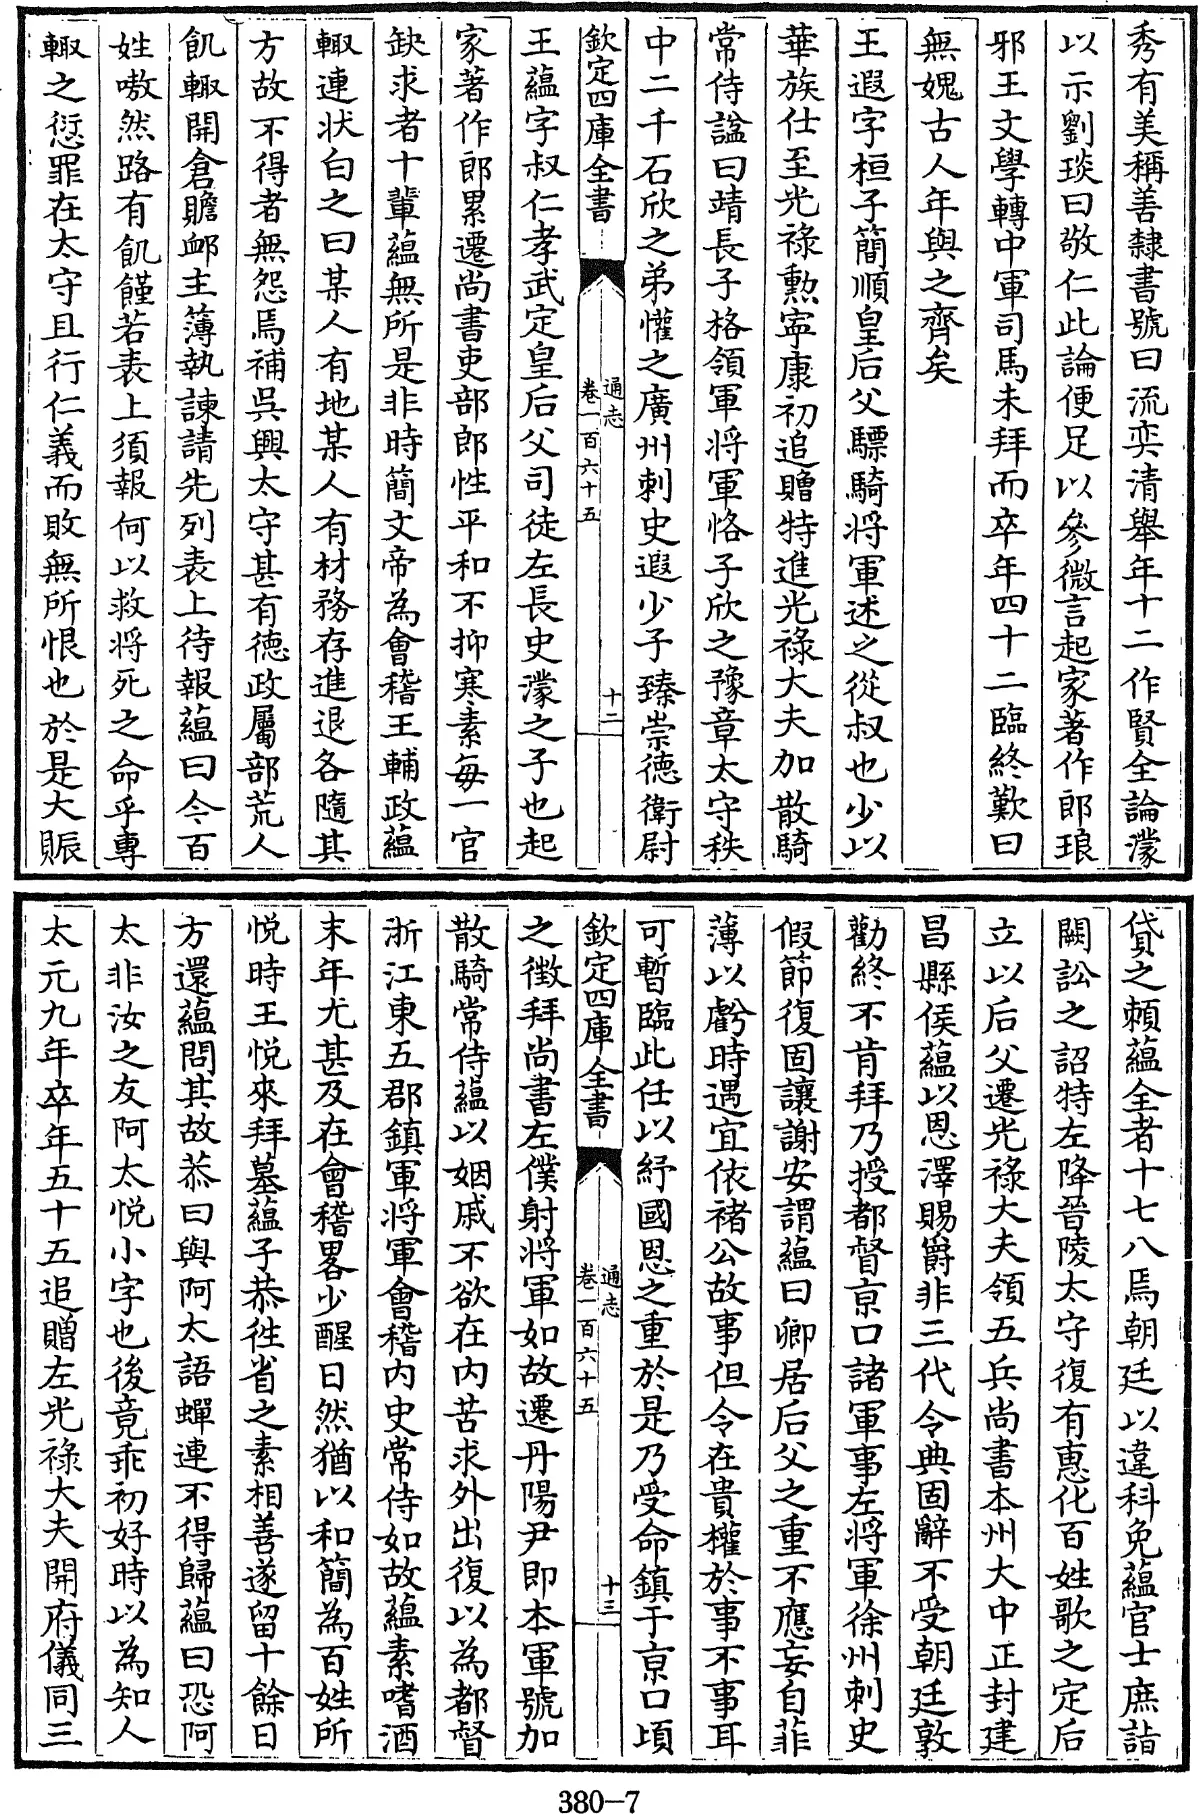 秀有美稱善隸書號曰流奕清舉年十二作賢全論濛
以示劉琰曰敬仁此論便足以參微言起家著作郎琅
邪王文學轉中軍司馬未拜而卒年四十二臨終歎曰
無媿古人年與之齊矣
王遐字桓子簡順皇后父驃騎將軍述之從叔也少以
華族仕至光祿勲寧康初追贈特進光祿大夫加散騎
常侍諡曰靖長子恪領軍將軍恪子欣之豫章太守秩
中二千石欣之弟懽之廣州刺史遐少子臻崇德衛尉
欽定四庫全書
通志
卷一百六十五
十二
王蘊字叔仁孝武定皇后父司徒左長史濛之子也起
家著作郎累遷尚書吏部郎性平和不抑寒素每一官
缺求者十輩蘊無所是非時簡文帝為會稽王輔政蘊
輙連状白之曰某人有地某人有材務存進退各隨其
方故不得者無怨焉補吳興太守甚有德政屬部荒人
飢輙開倉贍䘏主簿執諫請先列表上待報蘊曰今百
姓嗷然路有飢饉若表上須報何以救將死之命乎專
輙之愆罪在太守且行仁義而敗無所恨也於是大賑
貸之賴蘊全者十七八焉朝廷以違科免蘊官士庶詣
闕訟之詔特左降晉陵太守復有惠化百姓歌之定后
立以后父遷光祿大夫領五兵尚書本州大中正封建
昌縣侯蘊以恩澤賜爵非三代令典固辭不受朝廷敦
勸終不肯拜乃授都督京口諸軍事左將軍徐州刺史
假節復固讓謝安謂蘊曰卿居后父之重不應妄自菲
薄以虧時遇宜依褚公故事但令在貴權於事不事耳
可暫臨此任以紓國恩之重於是乃受命鎮于京口頃
欽定四庫全書
通志
卷一百六十五
十三
之徵拜尚書左僕射將軍如故遷丹陽尹即本軍號加
散騎常侍蘊以姻戚不欲在內苦求外出復以為都督
浙江東五郡鎮軍將軍會稽內史常侍如故蘊素嗜酒
末年尤甚及在會稽畧少醒日然猶以和簡為百姓所
悅時王悅來拜墓蘊子恭徃省之素相善遂留十餘日
方還蘊問其故恭曰與阿太語蟬連不得歸蘊曰恐阿
太非汝之友阿太悅小字也後竟乖初好時以為知人
太元九年卒年五十五追贈左光祿大夫開府儀同三
380-7